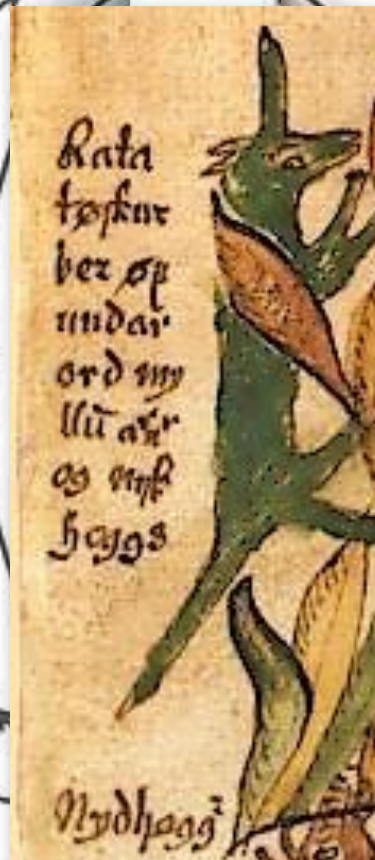 Rata
tøskur
ber øf
undar
ord my
llũ arr
og nyk
hoggs
Nydhøggr